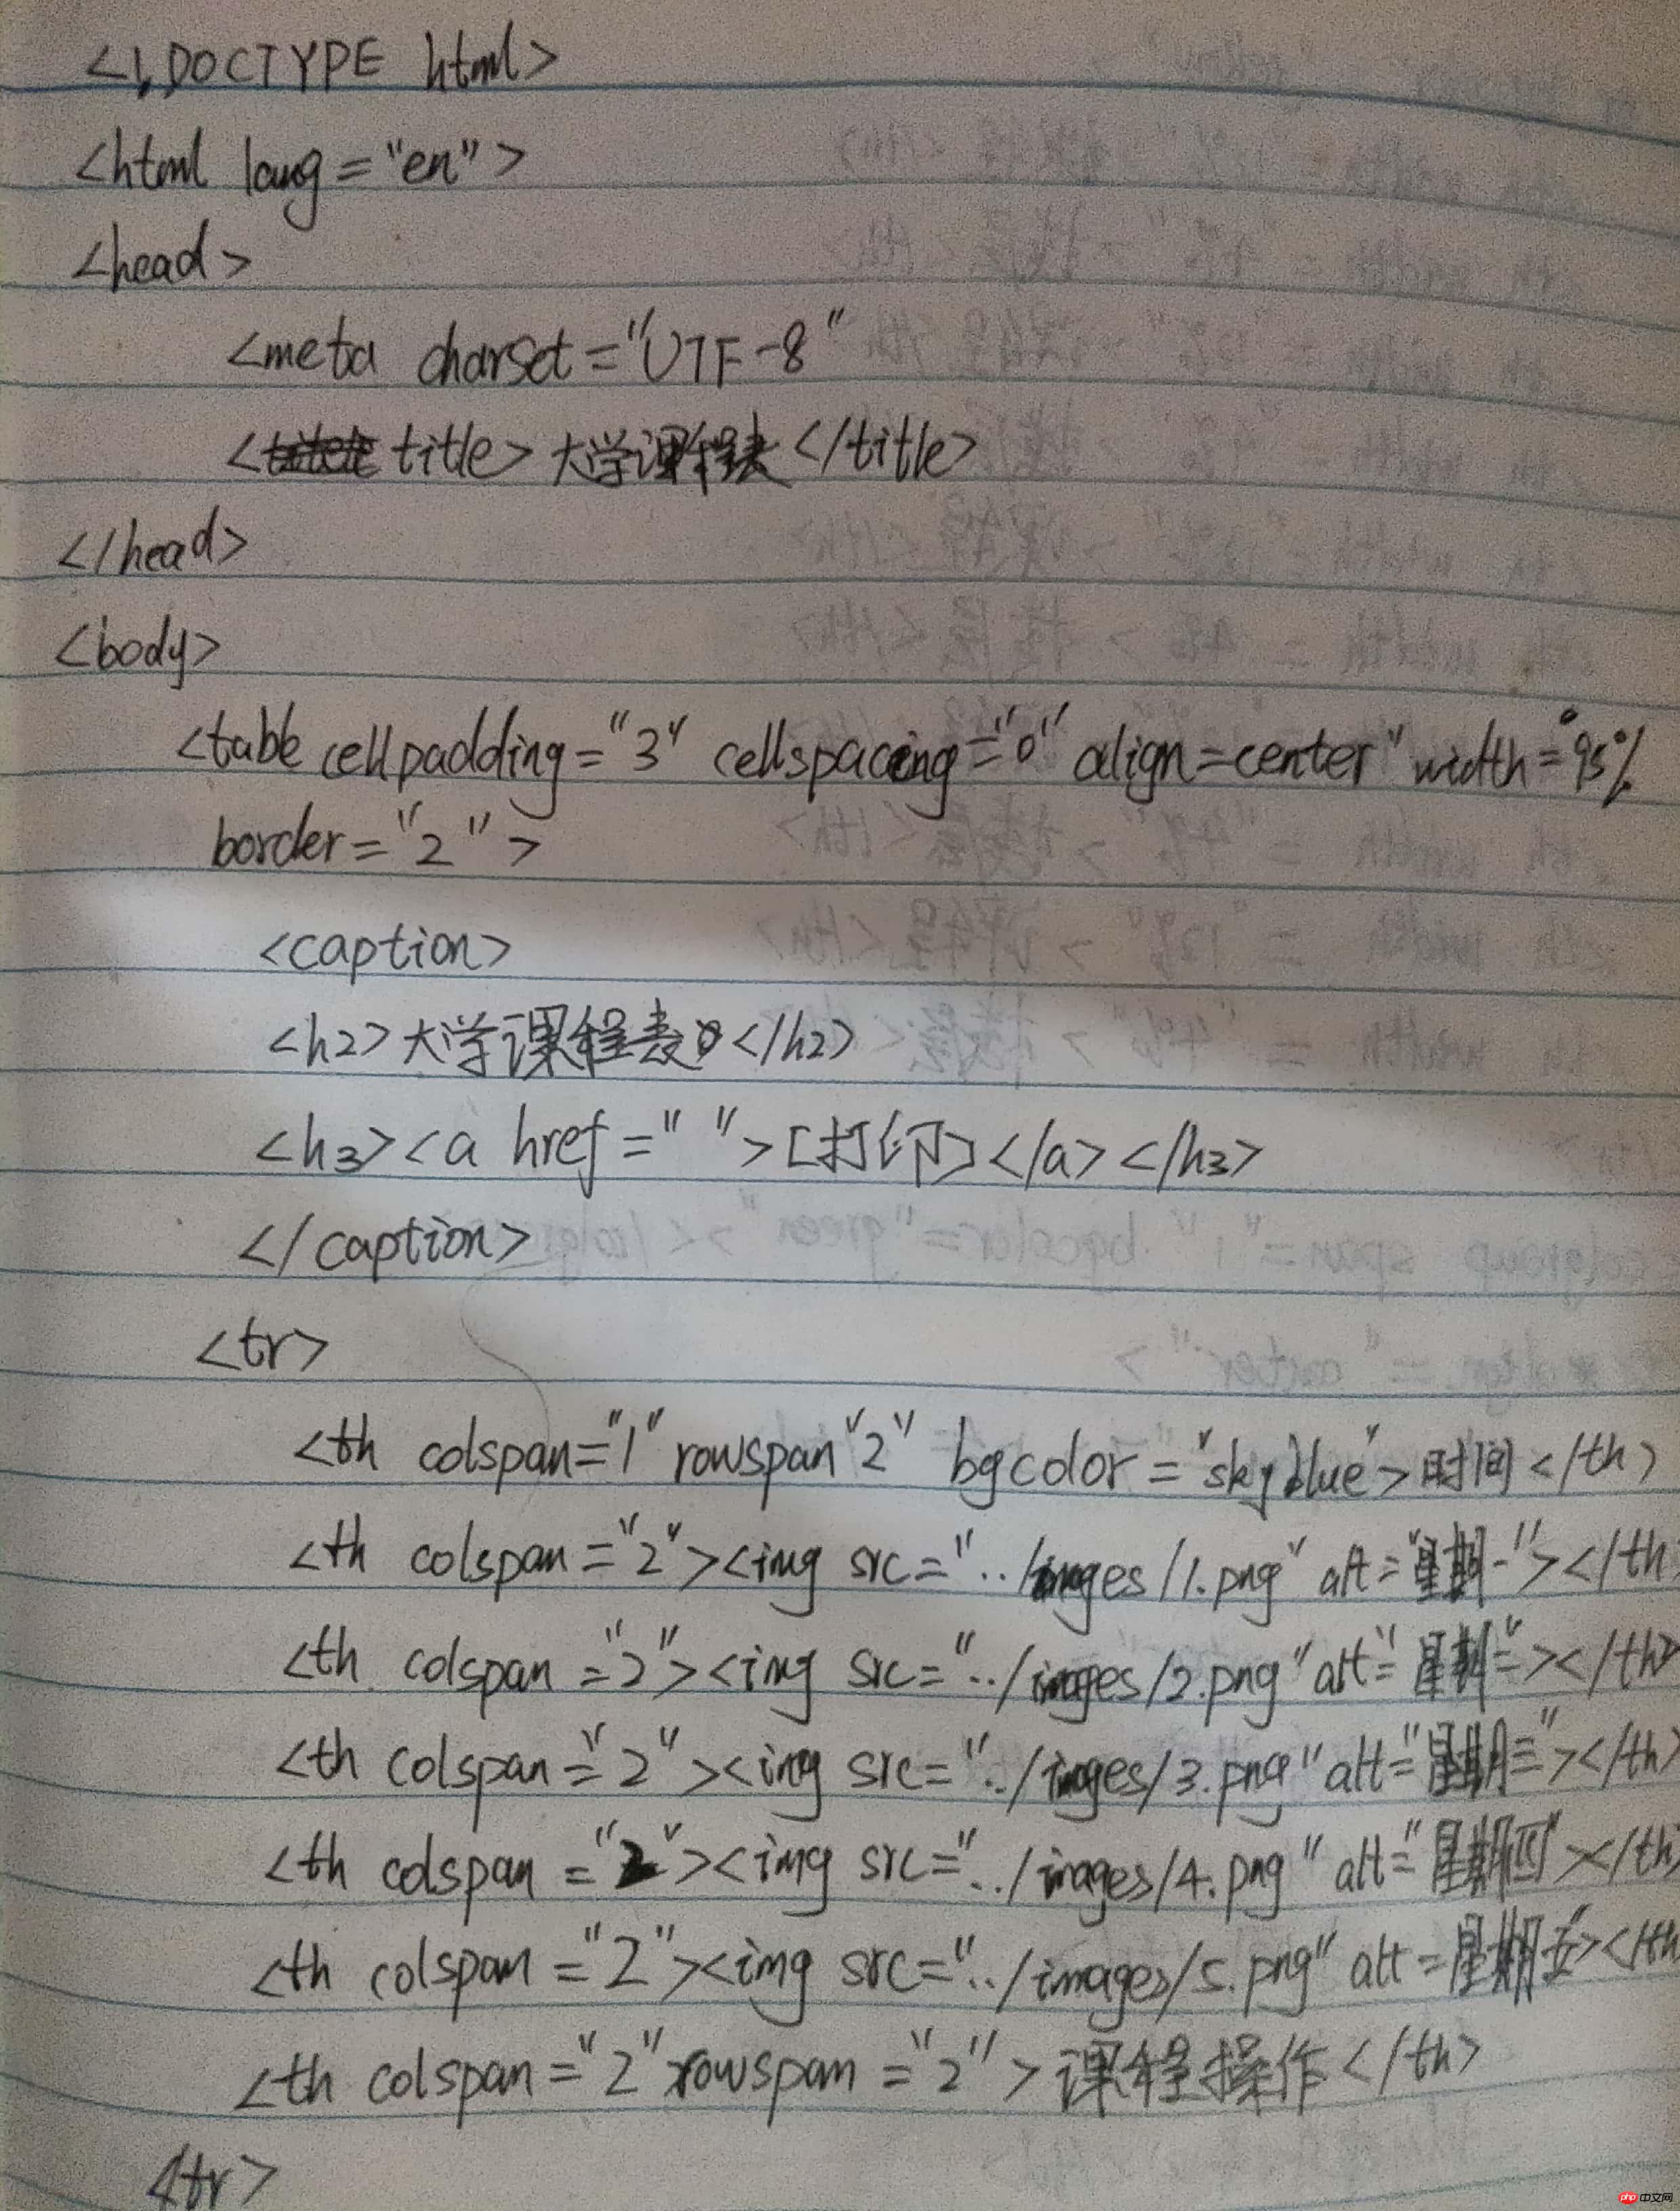 <!DOCTYPE html>
<html lang="en">
<head>
<meta charset="UTF-8"
<title>大学课程表</title>
</head>
<body>
<table cellpadding="3" cellspacing="0" align=center" width="95%
border="2">
<caption>
<h2>大学课程表</h2>
<h3><a href=" ">[打印]</a></h3>
</caption>
<tr>
<th colspan="1" rowspan"2" bgcolor="skyblue">时间</th>
<th colspan="2"><img src="../images/1.png" alt="星期一"></th>
<th colspan="2"><img src="../images/2.png" alt="星期二"></th>
<th colspan="2"><img src="../images/3.png" alt="星期三"></th>
<th colspan="2"><img src="../images/4.png" alt="星期四"></th
<th colspan="2"><img src="../images/5.png" alt=星期五"></th
<th colspan="2" rowspan="2">课程操作</th>
</tr>
php 中文网